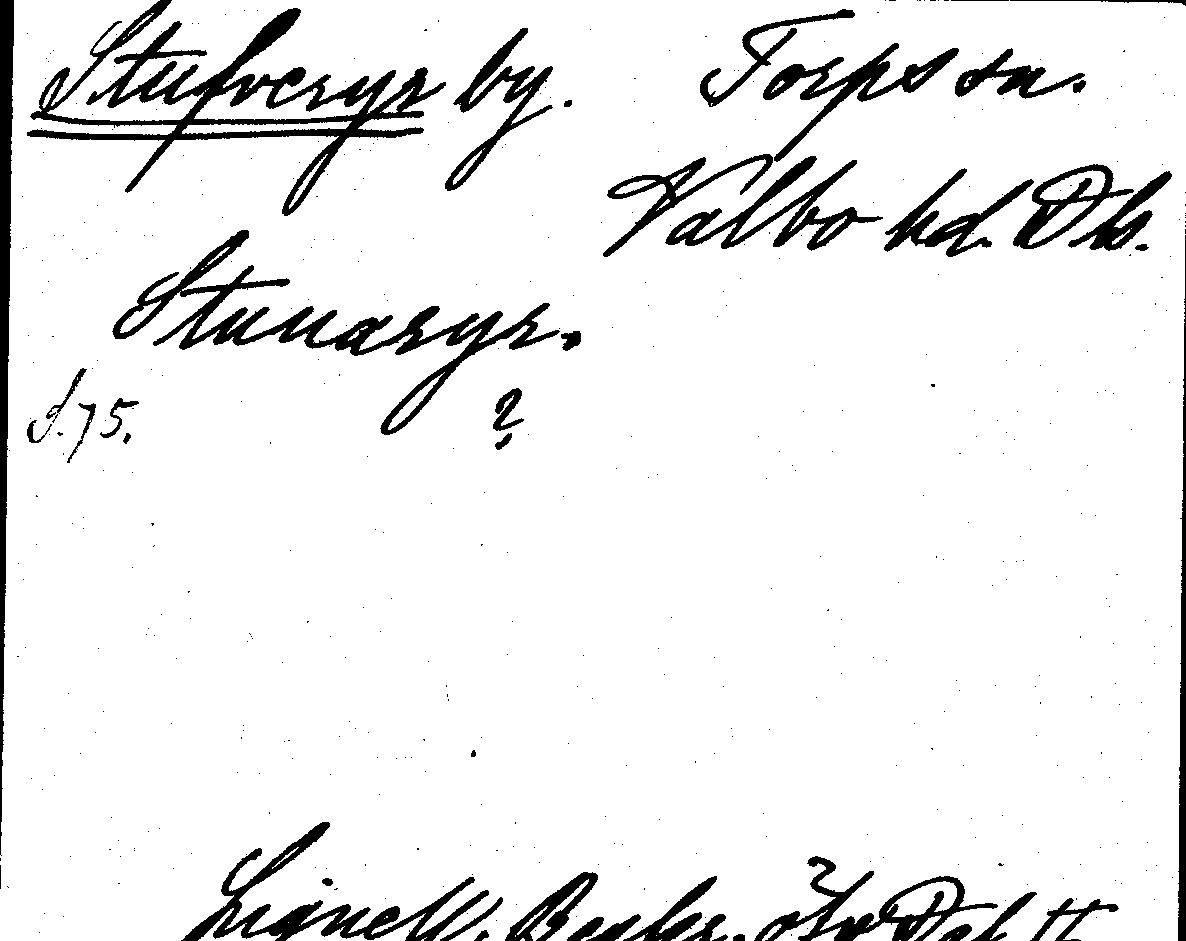 Stufveryr by. Torps sn.
Valbo hd. Dls.
Stuuaryr.
S. 75. ?
Lignell, Beskr. öfv Dal II